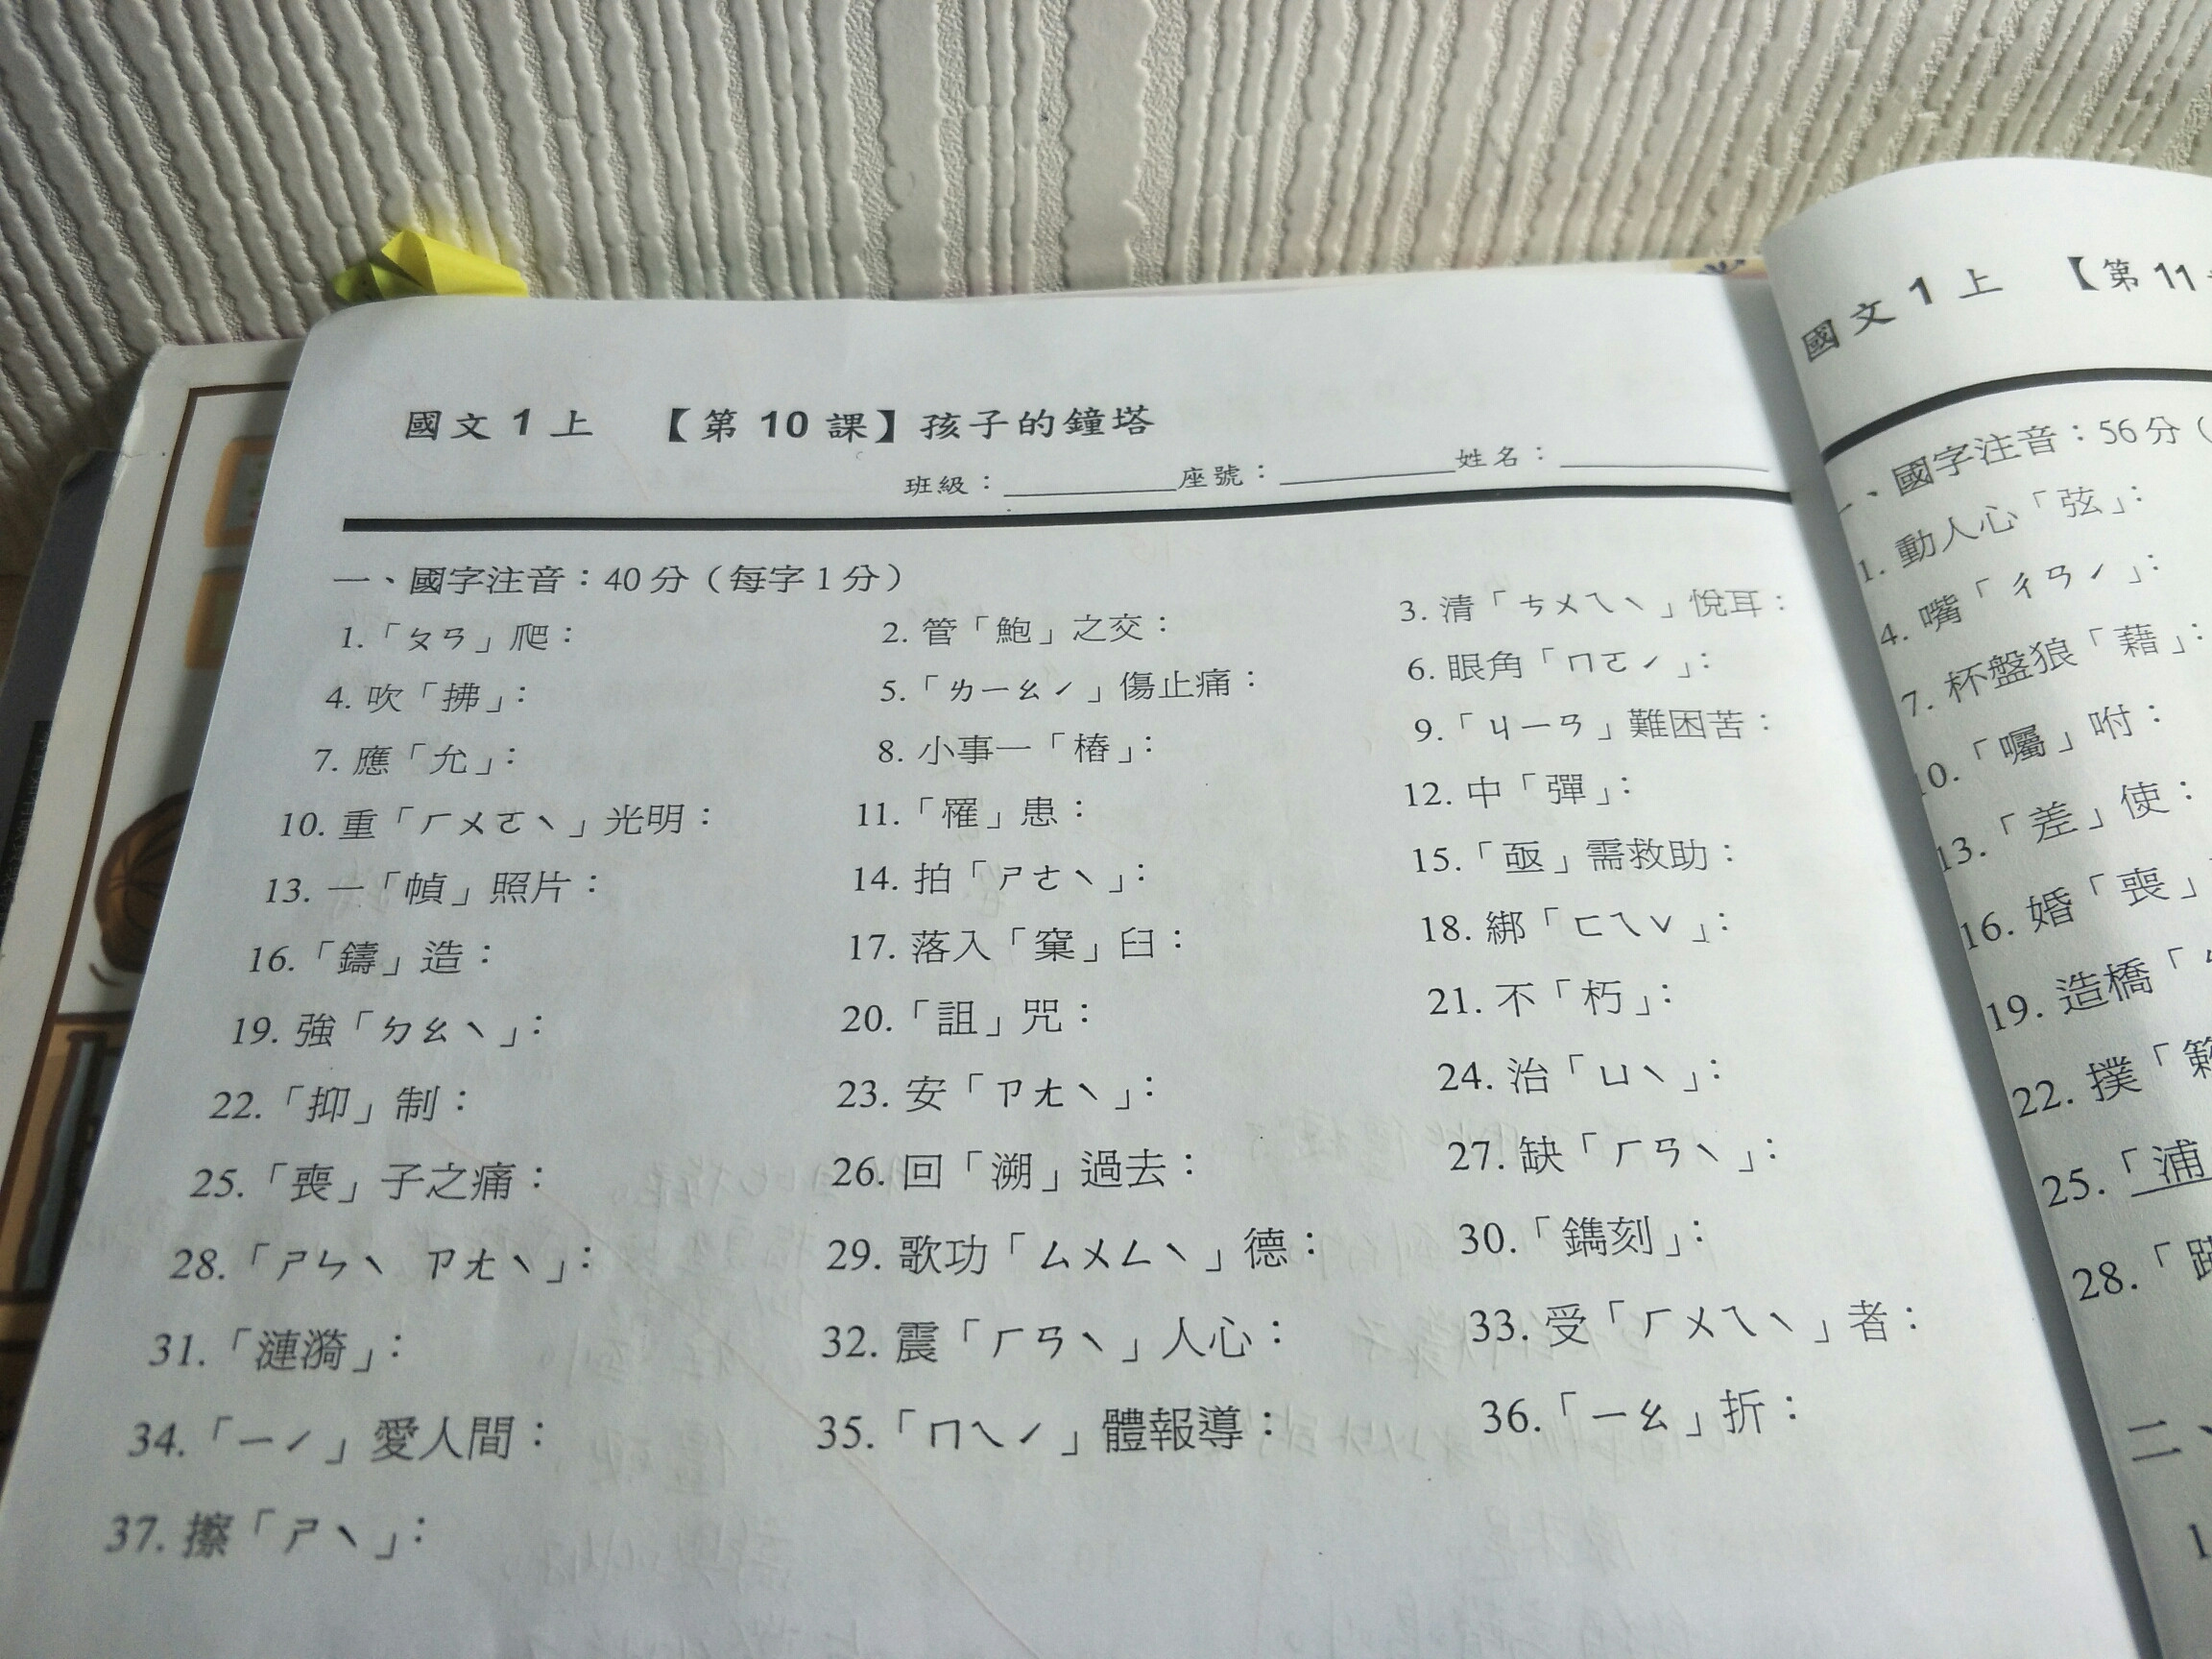 國文1上 【第10課】孩子的鐘塔
班級：＿＿＿＿座號：＿＿＿＿姓名：＿＿＿＿
一、國字注音：40分（每字1分）
1.「ㄆㄢ」爬：
2. 管「鮑」之交：
3. 清「ㄘㄨㄟˋ」悅耳：
4. 吹「拂」：
5.「ㄌㄧㄠˊ」傷止痛：
6. 眼角「ㄇㄛˊ」：
7. 應「允」：
8. 小事一「樁」：
9.「ㄐㄧㄢ」難困苦：
10. 重「ㄏㄨㄛˋ」光明：
11.「罹」患：
12. 中「彈」：
13. 一「幀」照片：
14. 拍「ㄕㄜˋ」：
15.「亟」需救助：
16.「鑄」造：
17. 落入「窠」臼：
18. 綁「ㄈㄟˇ」：
19. 強「ㄉㄠˋ」：
20.「詛」咒：
21. 不「朽」：
22.「抑」制：
23. 安「ㄗㄤˋ」：
24. 治「ㄩˋ」：
25.「喪」子之痛：
26. 回「溯」過去：
27. 缺「ㄏㄢˋ」：
28.「ㄕㄣˋ ㄗㄤˋ」：
29. 歌功「ㄙㄨㄥˋ」德：
30.「鐫刻」：
31.「漣漪」：
32. 震「ㄏㄢˋ」人心：
33. 受「ㄏㄨㄟˋ」者：
34.「ㄧˊ」愛人間：
35.「ㄇㄟˊ」體報導：
36.「ㄧㄠ」折：
37. 擦「ㄕˋ」：
國文1上 【第11
一、國字注音：56分（
1. 動人心「弦」：
4. 嘴「ㄔㄢˊ」：
7. 杯盤狼「藉」：
10.「囑」咐：
13.「差」使：
16. 婚「喪」
19. 造橋「
22. 撲「
25.「浦
28.「
二、
1